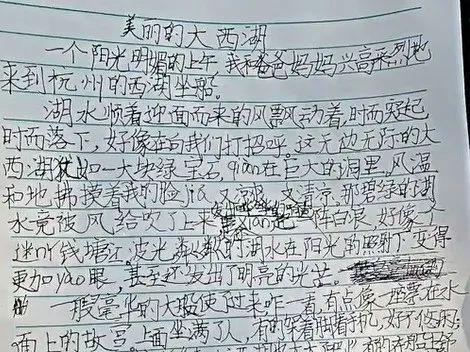 美丽的大西湖
一个阳光明媚的上午 我和爸爸妈妈兴高采烈地
来到杭州的西湖坐船。
湖水顺着迎面而来的风飘动着,时而突起
时而落下,好像在向我们打招呼。这无边无际的大
西湖犹如一大块绿宝石,qian在巨大的洞里,风温
和地拂摸着我的脸,又清凉,那碧绿的湖
水竟被风给吹了上来 一阵白浪,好像个
迷你钱塘江。波光粼粼的湖水在阳光的照射下变得
更加yao眼,甚至还发出了明亮的光芒。
一艘豪华的大船使了过来,咋一看,有点像一座漂在水
面上的故宫。上面坐满了人,有的坐着聊着手机,好不悠乐;